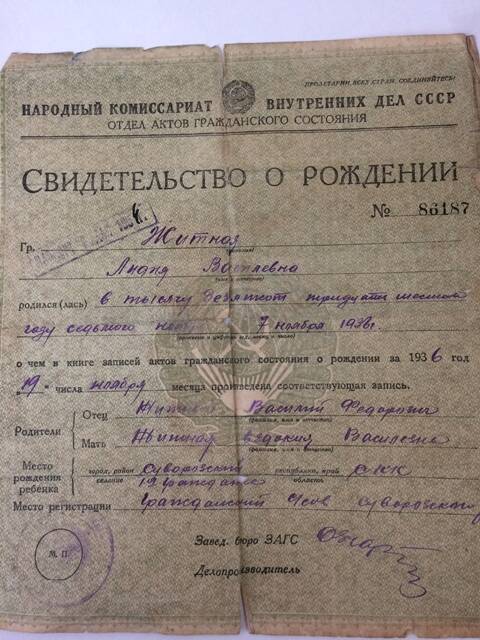 ПРОЛЕТАРИИ ВСЕХ СТРАН, СОЕДИНЯЙТЕСЬ!
НАРОДНЫЙ КОМИССАРИАТ ВНУТРЕННИХ ДЕЛ СССР
ОТДЕЛ АКТОВ ГРАЖДАНСКОГО СОСТОЯНИЯ
СВИДЕТЕЛЬСТВО О РОЖДЕНИИ
№ 86187
Гр. Житная
(фамилия)
Лидия Василевна
(имя и отчество)
родился (лась) в тысячу девятсот тридцати шестом
году седьмого 7 ноября 1936г.
(прописью и цифрами год, месяц и число)
о чем в книге записей актов гражданского состояния о рождении за 1936 год
„19“ числа ноября месяца произведена соответствующая запись.
Родители
Отец Василий Федорович
(фамилия, имя и отчество)
Мать Житная Василевна
(фамилия, имя и отчество)
Место рождения ребенка
город, район Суворовский республика, край
селение область
Место регистрации Гражданский
Завед. бюро ЗАГС
М. П.
Делопроизводитель